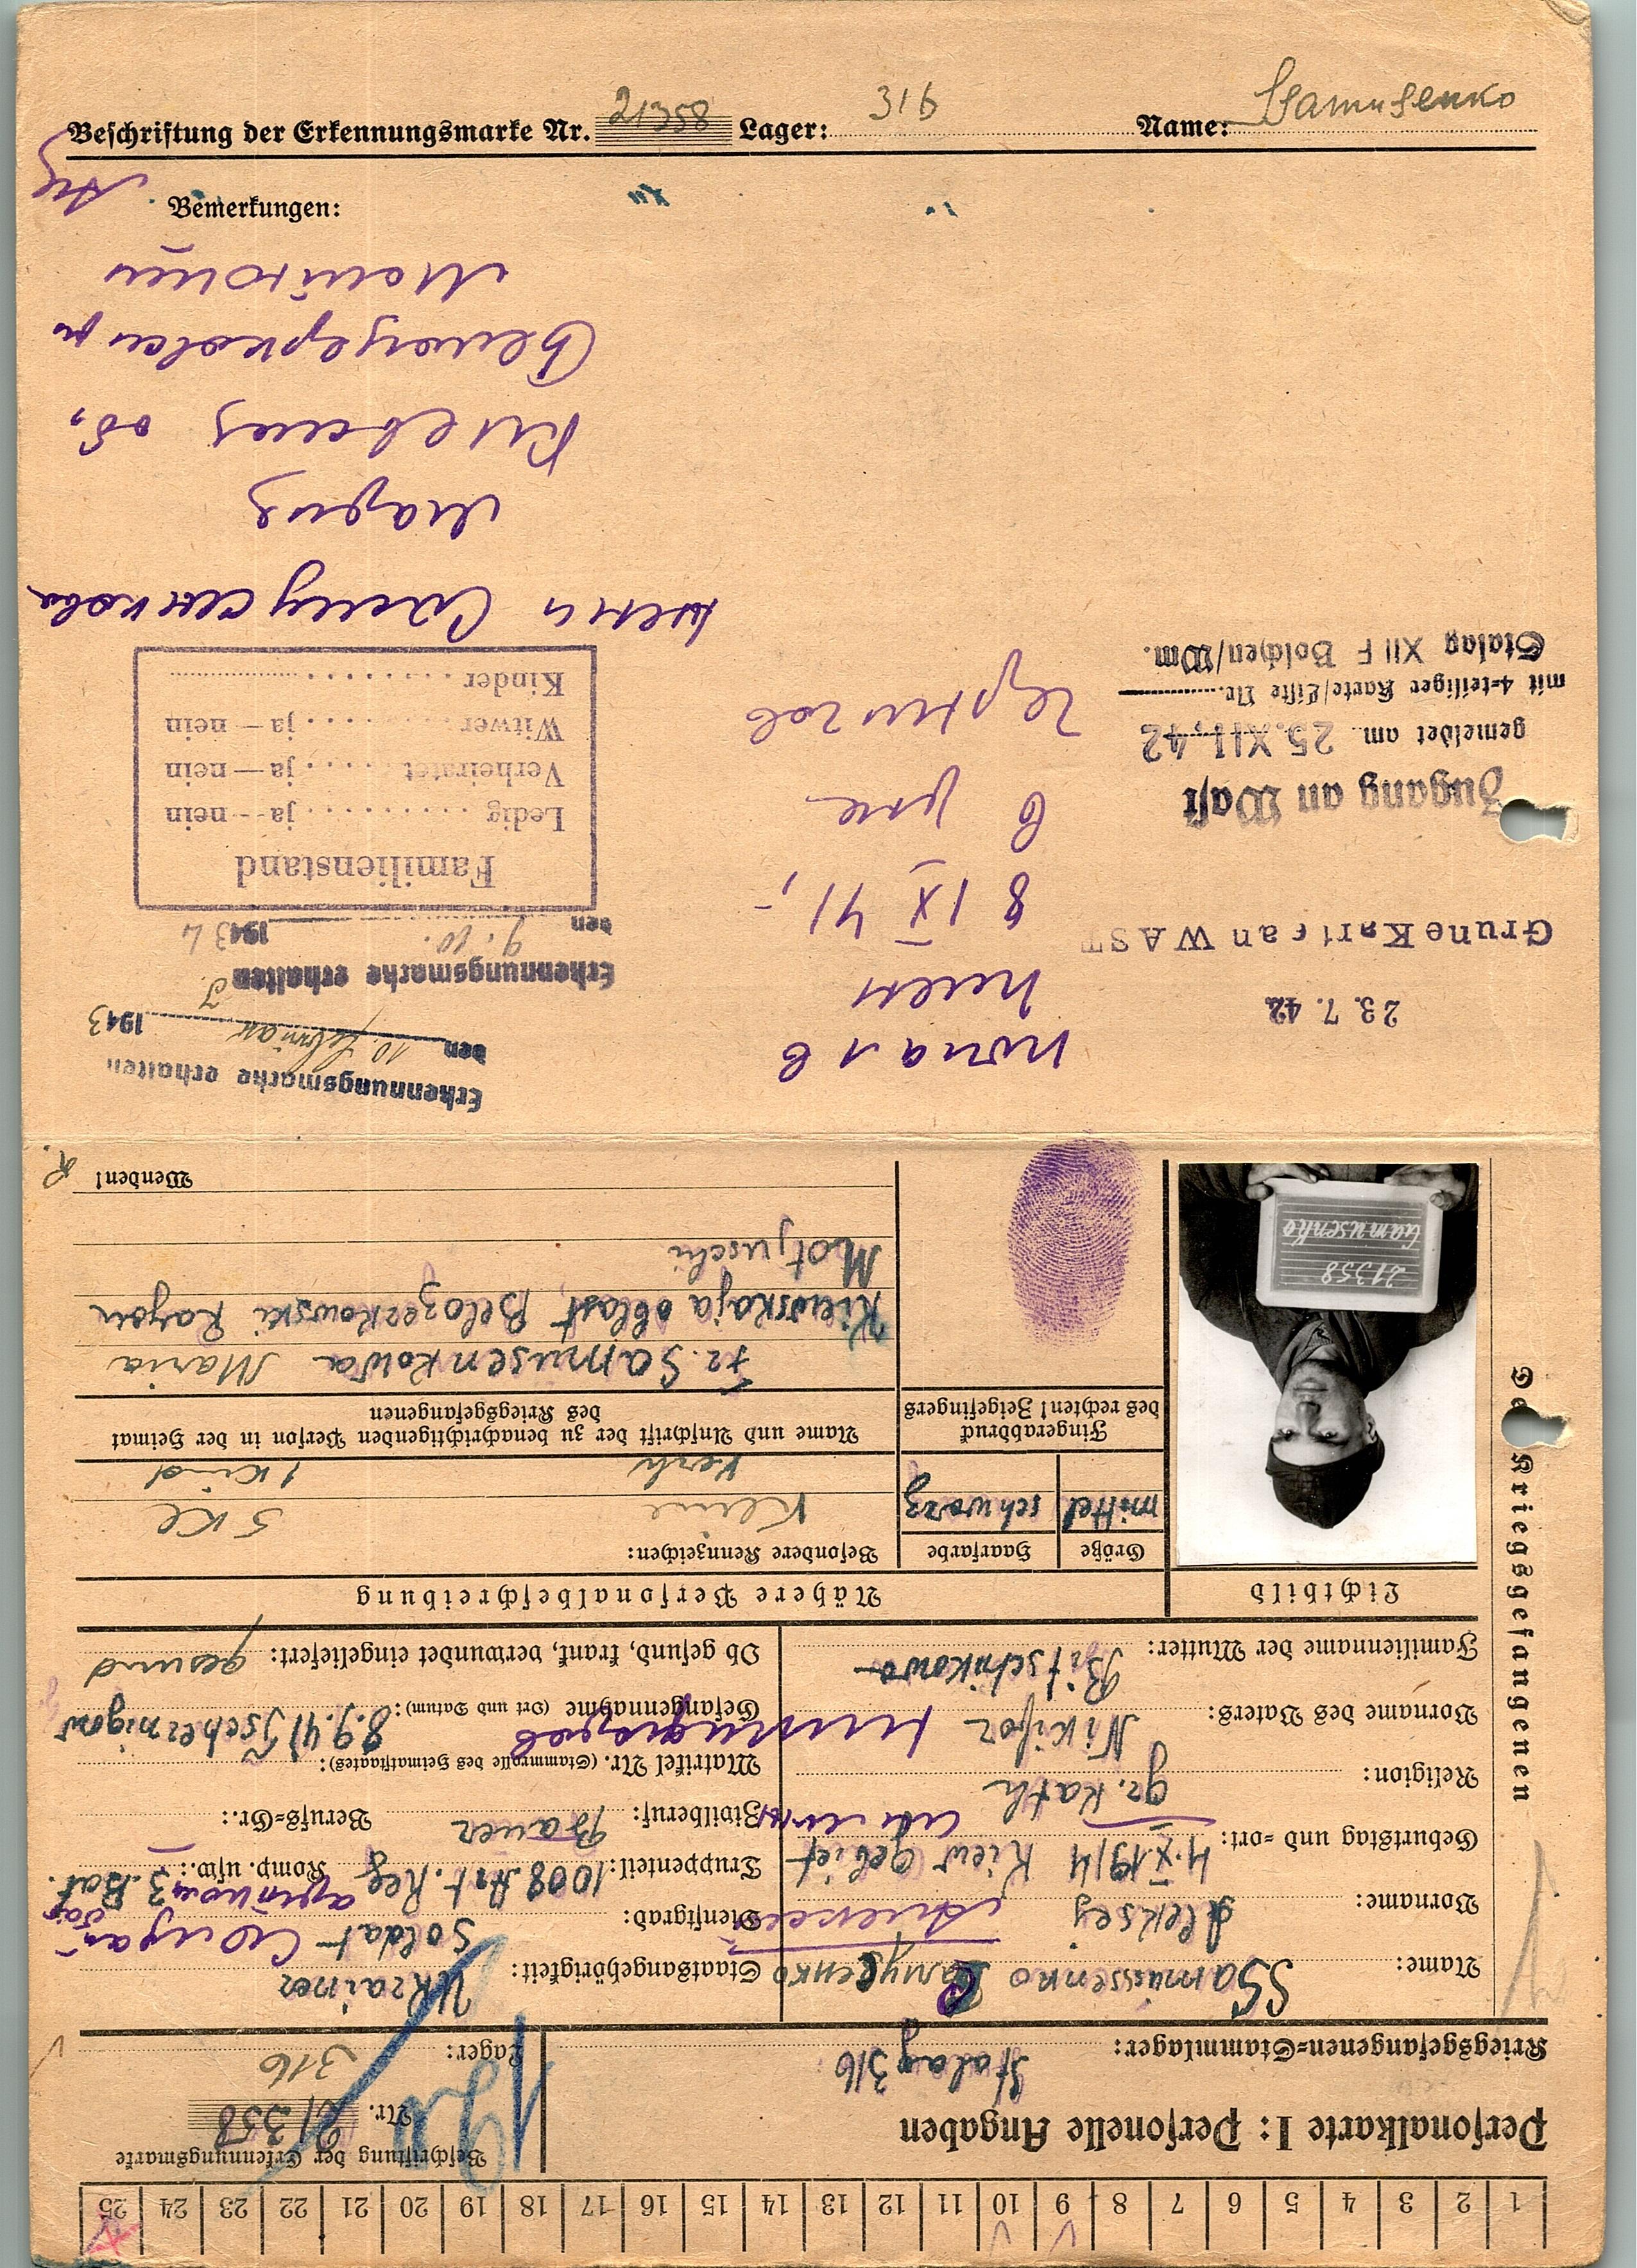 Beschriftung der Erkennungsmarke Nr. 21358 Lager: 316 Name: Ssamusenko
Bemerkungen:
жена Самусенкова
Мария
Киевская об,
Белоцерковски
Erkennungsmarke erhalten
den 10. Februar 1943
Erkennungsmarke erhalten
den 9. 10. 1943
Familienstand
Ledig .......... ja -- nein
Verheiratet ..... ja — nein
Witwer ......... ja — nein
Kinder ....................
попал в
плен
8 IX 41,-
23. 7. 42
Grune Karte an WAST
Zugang an Wast
gemeldet am 25. XII. 42
mit 4-teiliger Karte/Liste Nr.
Stalag XII F Bolchen/Wm.
1 2 3 4 5 6 7 8 9 10 11 12 13 14 15 16 17 18 19 20 21 22 23 24 25
Personalkarte I: Personelle Angaben
Beschriftung der Erkennungsmarke
Nr. 21358
Kriegsgefangenen=Stammlager: Stalag 316
Lager: 316
Des Kriegsgefangenen
Name: SSamussenko Самусенко
Staatsangehörigkeit: Ukrainer
Vorname: Aleksej Алексей
Dienstgrad: Soldat
Geburtstag und =ort: 4.X.1914 Kiew Gebiet
Truppenteil: 1008. Art. Reg Komp. usw.: 3. Bat.
Religion: gr. kath
Zivilberuf: Bauer Berufs=Gr.:
Vorname des Vaters: Nikifor
Matrikel Nr. (Stammrolle des Heimatstaates):
Gefangennahme (Ort und Datum): 8.9.41 Tschernigow
Familienname der Mutter: Bitschikowa
Ob gesund, krank, verwundet eingeliefert: gesund
Lichtbild
Nähere Personalbeschreibung
Größe Haarfarbe Besondere Kennzeichen:
mittel schwarz Keine 5 Kl
Verh 1 Kind
Fingerabdruck
des rechten! Zeigefingers
Name und Anschrift der zu benachrichtigenden Person in der Heimat
des Kriegsgefangenen
Fr. Samusenkowa Maria
Kiewskaja oblast, Belozerkowski Rayon
Motjuschi
Wenden!
21358
Samusenko